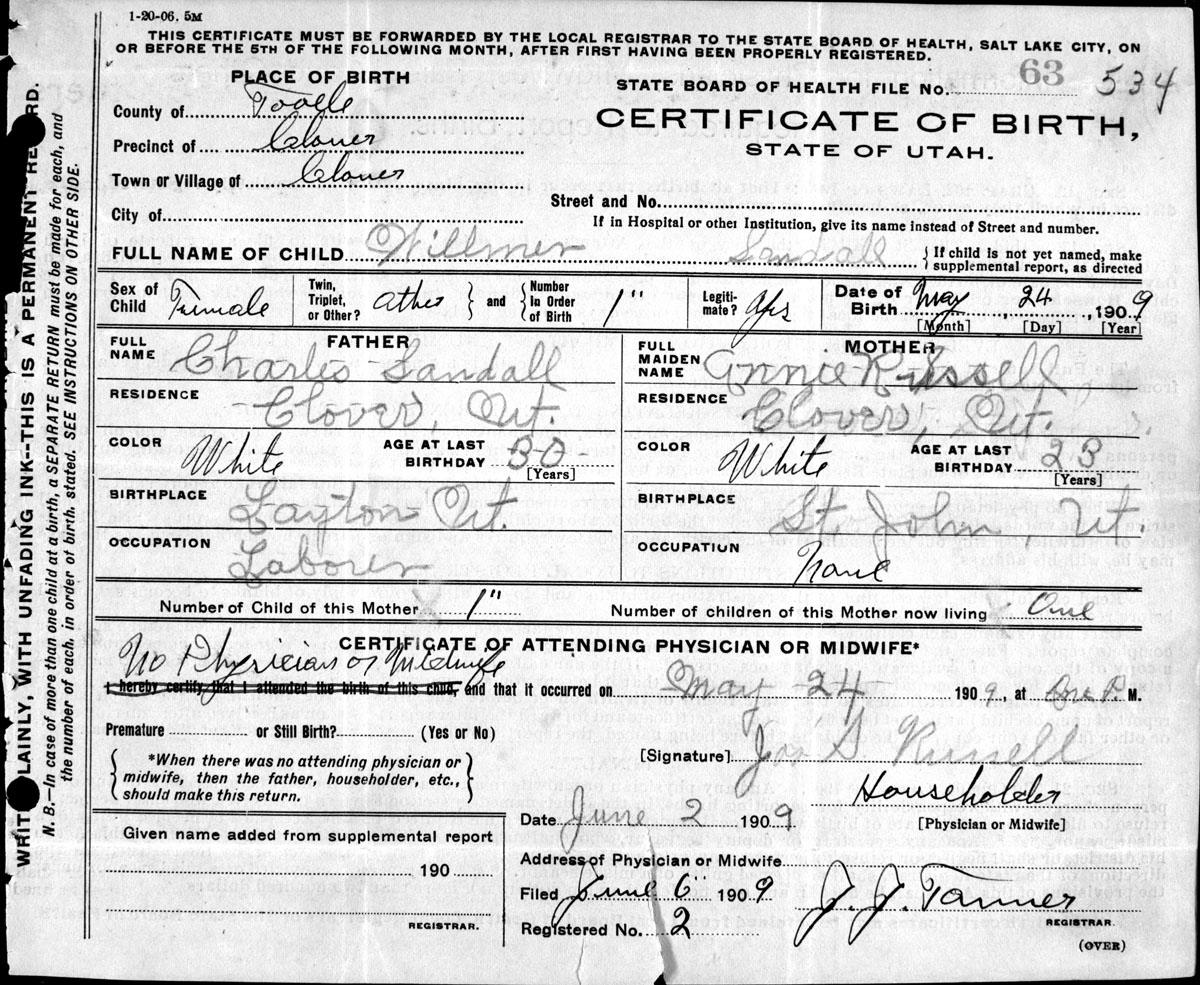 1-20-06. 5M
THIS CERTIFICATE MUST BE FORWARDED BY THE LOCAL REGISTRAR TO THE STATE BOARD OF HEALTH, SALT LAKE CITY, ON
OR BEFORE THE 5TH OF THE FOLLOWING MONTH, AFTER FIRST HAVING BEEN PROPERLY REGISTERED.
PLACE OF BIRTH
STATE BOARD OF HEALTH FILE No. 63 534
County of Tooele
CERTIFICATE OF BIRTH,
STATE OF UTAH.
Precinct of Clover
Town or Village of Clover
Street and No.
City of
If in Hospital or other Institution, give its name instead of Street and number.
FULL NAME OF CHILD Willmer Sandall { If child is not yet named, make supplemental report, as directed
Sex of Child Female
Twin, Triplet, or Other? other } and { Number in Order of Birth 1"
Legiti-mate? Yes
Date of Birth May 24, 1909
[Month] [Day] [Year]
FATHER
FULL NAME Charles Sandall
RESIDENCE Clover, Ut.
COLOR White AGE AT LAST BIRTHDAY 30 [Years]
BIRTHPLACE Layton Ut.
OCCUPATION Laborer
MOTHER
FULL MAIDEN NAME Annie Russell
RESIDENCE Clover, Ut.
COLOR White AGE AT LAST BIRTHDAY 23 [Years]
BIRTHPLACE St. John, Ut.
OCCUPATION None
Number of Child of this Mother 1" Number of children of this Mother now living One
CERTIFICATE OF ATTENDING PHYSICIAN OR MIDWIFE*
No Physician or Midwife
I hereby certify that I attended the birth of this child, and that it occurred on May 24 1909, at One P M.
Premature or Still Birth? (Yes or No)
[Signature] Jos S. Russell
{ *When there was no attending physician or midwife, then the father, householder, etc., should make this return. }
Householder
[Physician or Midwife]
Date June 2 1909
Given name added from supplemental report
190
REGISTRAR.
Address of Physician or Midwife
Filed June 6" 1909 J. J. Tanner
REGISTRAR.
Registered No. 2
(OVER)
WRITE PLAINLY, WITH UNFADING INK--THIS IS A PERMANENT RECORD.
N. B.—In case of more than one child at a birth, a SEPARATE RETURN must be made for each, and
the number of each, in order of birth, stated. SEE INSTRUCTIONS ON OTHER SIDE.